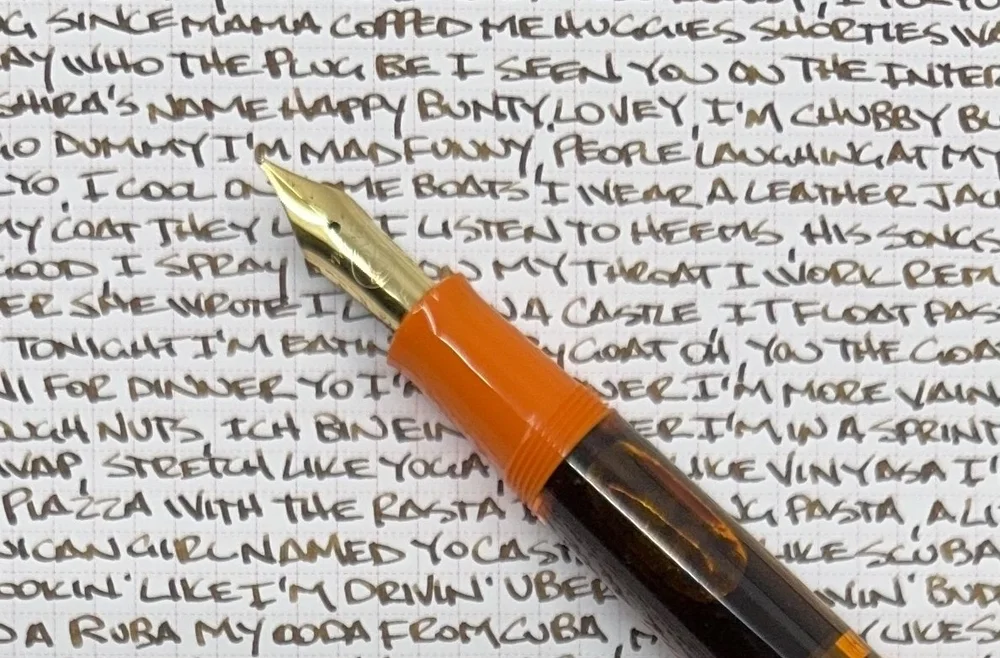 G SINCE MAMA COPPED ME HUGGIES SHORTIES WA
AY WHO THE PLUG BE I SEEN YOU ON THE INTER
SHIRA'S NAME HAPPY BUNTY, LOVEY, I'M CHUBBY BU
DUMMY I'M MAD FUNNY, PEOPLE LAUGHING AT MY
YO, I COOL ON ME BOATS I WEAR A LEATHER JAC
MY COAT THEY I LISTEN TO HEEMS, HIS SONGS
GOOD I SPRAY ON MY THROAT I WORK REM
ER SHE WROTE I A CASTLE IT FLOAT PAS
TONIGHT I'M EATIN GOAT OH YOU THE GOA
FOR DINNER YO I' I'M MORE VAIN
OUGH NUTS, ICH BIN EIN ER I'M IN A SPRINT
WAP, STRETCH LIKE YOGA LIKE VINYASA I'
PIAZZA WITH THE RASTA PASTA, A LI
ICAN GIRL NAMED YOCAST LIKE SCUBA
OOKIN' LIKE I'M DRIVIN' UBER WIN' BUD
A RUBA MY OODA FROM CUBA, LIKES